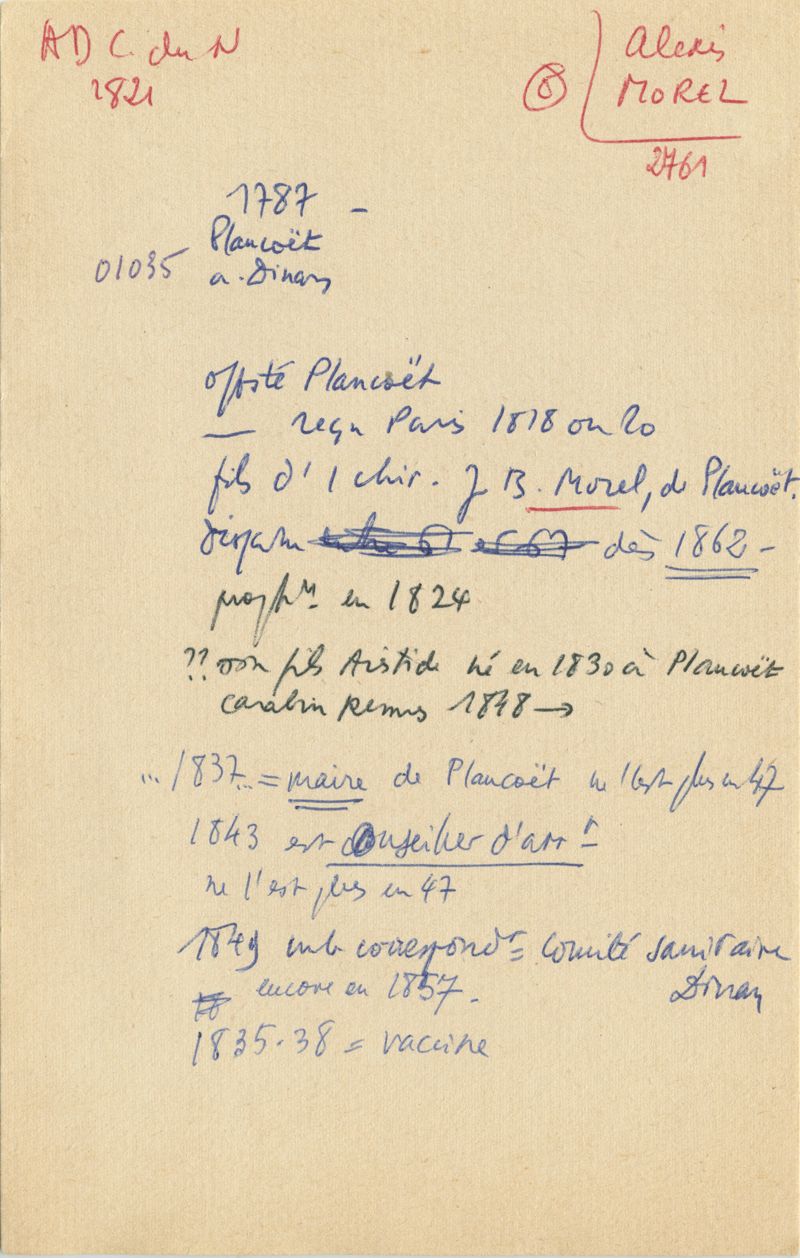 AD C. du N
1821
Alexis
⑧ MOREL
2761
1787 -
Plancoët
01035 a. Dinan
offsté Plancoët
— reçu Paris 1818 ou 20
fils d'1 chir. J B. Morel, de Plancoët.
disparu dès 1862 -
en 1824
?? son fils Aristide né en 1830 à Plancoët
carabin Rennes 1848 →
... 1837... = maire de Plancoët ne l'est plus en 47
1843 est Conseiller d'arrt
ne l'est plus en 47
1849 mb correspondt = Comité sanitaire
Dinan
encore en 1857.
1835-38 = vaccine